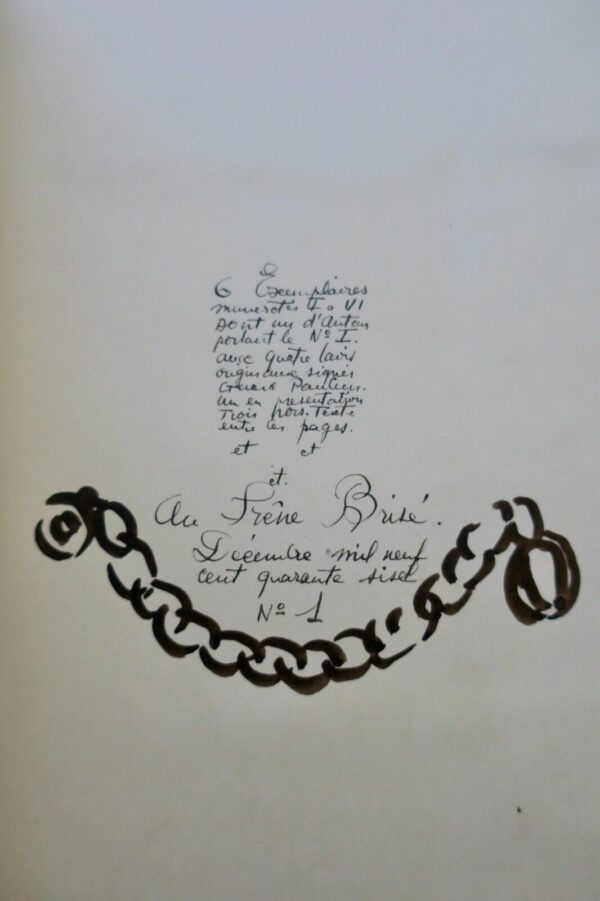 6 Exemplaires
numerotés I a VI
Dont un d'Auteur
portant le Nº I.
avec quatre lavis
originaux signés
Gerard
Un en presentation
Trois hors-Texte
entre les pages.
et et
et.
Au Frêne Brisé.
Décembre mil neuf
cent quarante sisel
Nº 1